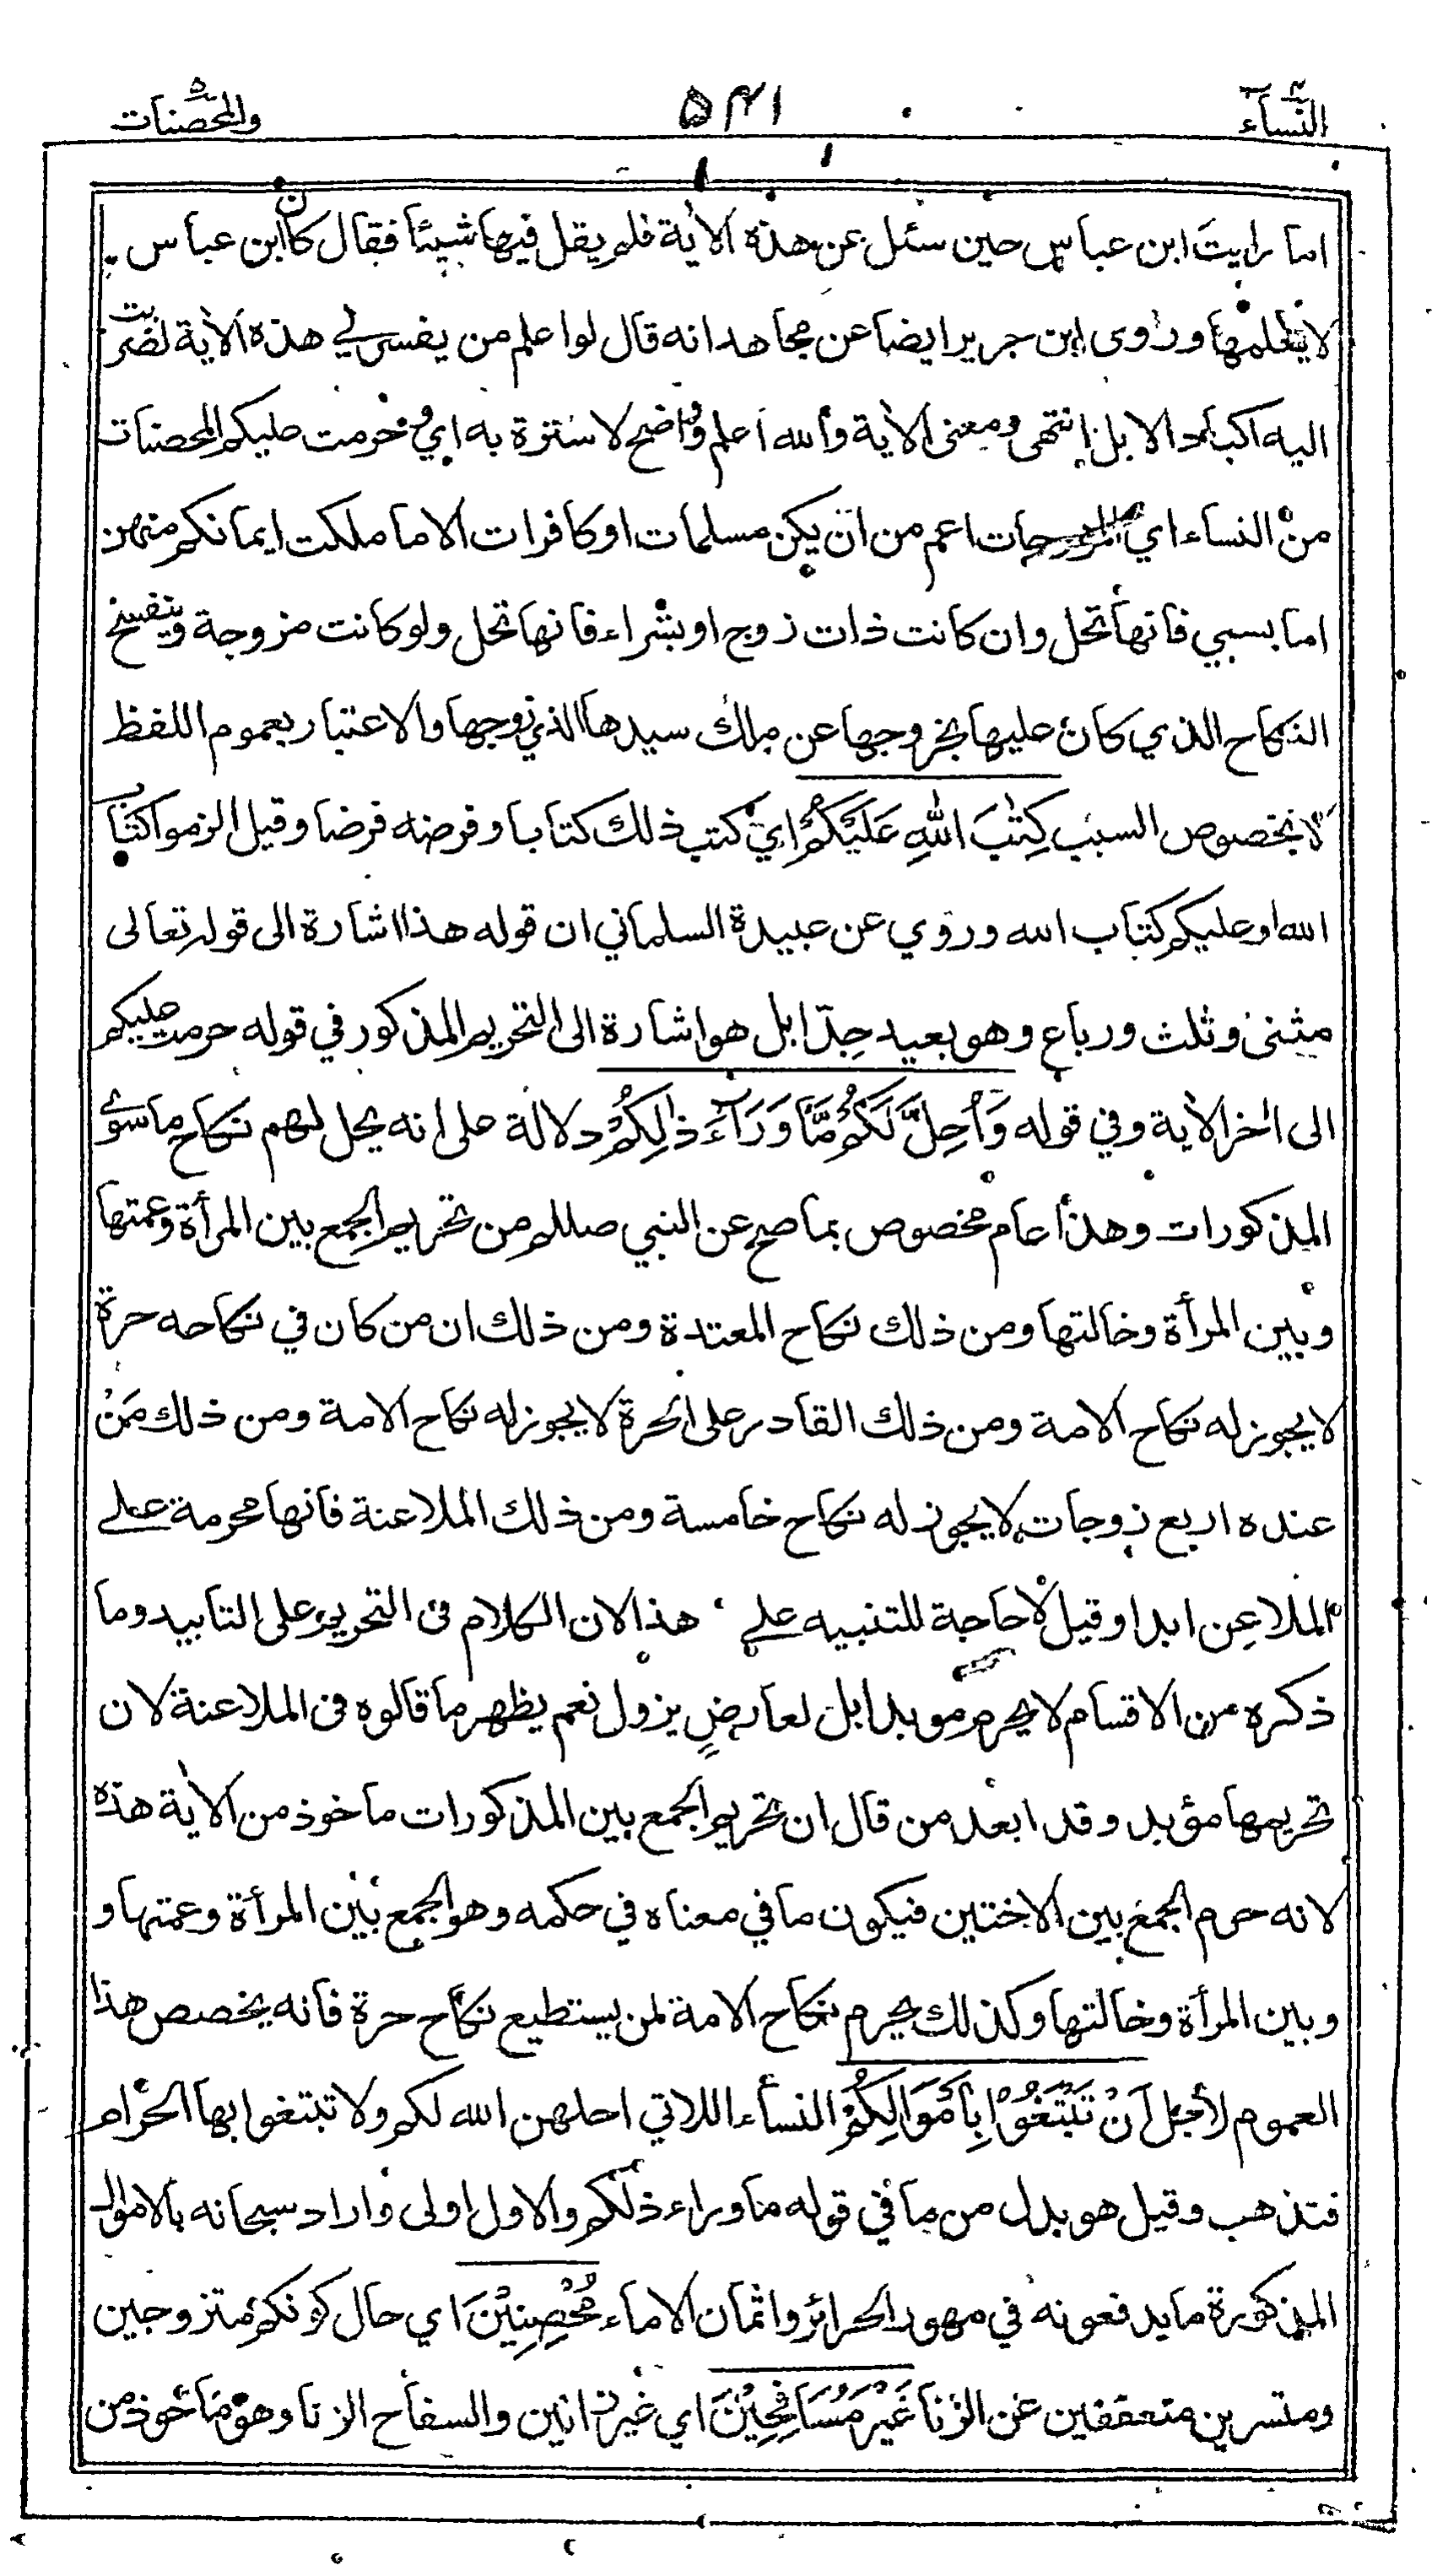 النساء ٤
٥٤١
والمحصنات ٥
اما رايت ابن عباس حين سئل عن هذه الاٰية فلم يقل فيها شيئا فقال كان ابن عباس
لا يعلمها وروى ابن جرير ايضا عن مجاهد انه قال لو اعلم من يفسر لي هذه الاٰية لضربت
اليه اكباد الابل انتهى ومعنى الاٰية والله اعلم واضح لا سترة به اي وحرمت عليكم المحصنات
من النساء اي المزوجات اعم من ان يكن مسلمات او كافرات الا ما ملكت ايمانكم منهن
اما بسبي فانها تحل وان كانت ذات زوج او بشراء فانها تحل ولو كانت مزوجة وينفسخ
النكاح الذي كان عليها بخروجها عن ملك سيدها الذي زوجها والاعتبار بعموم اللفظ
لا بخصوص السبب كِتٰبَ اللهِ عَلَيْكُمْ اي كتب ذلك كتابا وفرضه فرضا وقيل الزموا كتاب
الله او عليكم كتاب الله وروي عن عبيدة السلماني ان قوله هذا اشارة الى قوله تعالى
مثنى وثلث ورباع وهو بعيد جدّا بل هو اشارة الى التحريم المذكور في قوله حرمت عليكم
الى اٰخر الاٰية وفي قوله وَاُحِلَّ لَكُمْ مَّا وَرَآءَ ذٰلِكُمْ دلالة على انه يحل لهم نكاح ما سوى
المذكورات وهذا عام مخصوص بما صح عن النبي صللم من تحريم الجمع بين المرأة وعمتها
وبين المرأة وخالتها ومن ذلك نكاح المعتدة ومن ذلك ان من كان في نكاحه حرة
لا يجوز له نكاح الامة ومن ذلك القادر على الحرة لا يجوز له نكاح الامة ومن ذلك مَنْ
عنده اربع زوجات لا يجوز له نكاح خامسة ومن ذلك الملاعنة فانها محرمة على
الملاعِن ابدا وقيل لا حاجة للتنبيه على هذا لان الكلام في التحريم على التابيد وما
ذكره من الاقسام لا يحرم موبدا بل لعارضٍ يزول نعم يظهر ما قالوه في الملاعنة لان
تحريمها مؤبد وقد ابعد من قال ان تحريم الجمع بين المذكورات ماخوذ من الاٰية هذه
لانه حرم الجمع بين الاختين فيكون ما في معناه في حكمه وهو الجمع بين المرأة وعمتها و
وبين المرأة وخالتها وكذلك يحرم نكاح الامة لمن يستطيع نكاح حرة فانه يخصص هذا
العموم لأجل اَنْ تَبْتَغُوْا بِاَمْوَالِكُمْ النساء اللاتي احلهن الله لكم ولا تبتغوا بها الحرام
فتذهب وقيل هو بدل من ما في قوله ما وراء ذلكم والاول اولى واراد سبحانه بالاموال
المذكورة ما يدفعونه في مهور الحرائر واثمان الاماء مُحْصِنِيْنَ اي حال كونكم متزوجين
ومتسرين متعففين عن الزنا غَيْرَ مُسَافِحِيْنَ اي غير زانين والسفاح الزنا وهو ماخوذ من